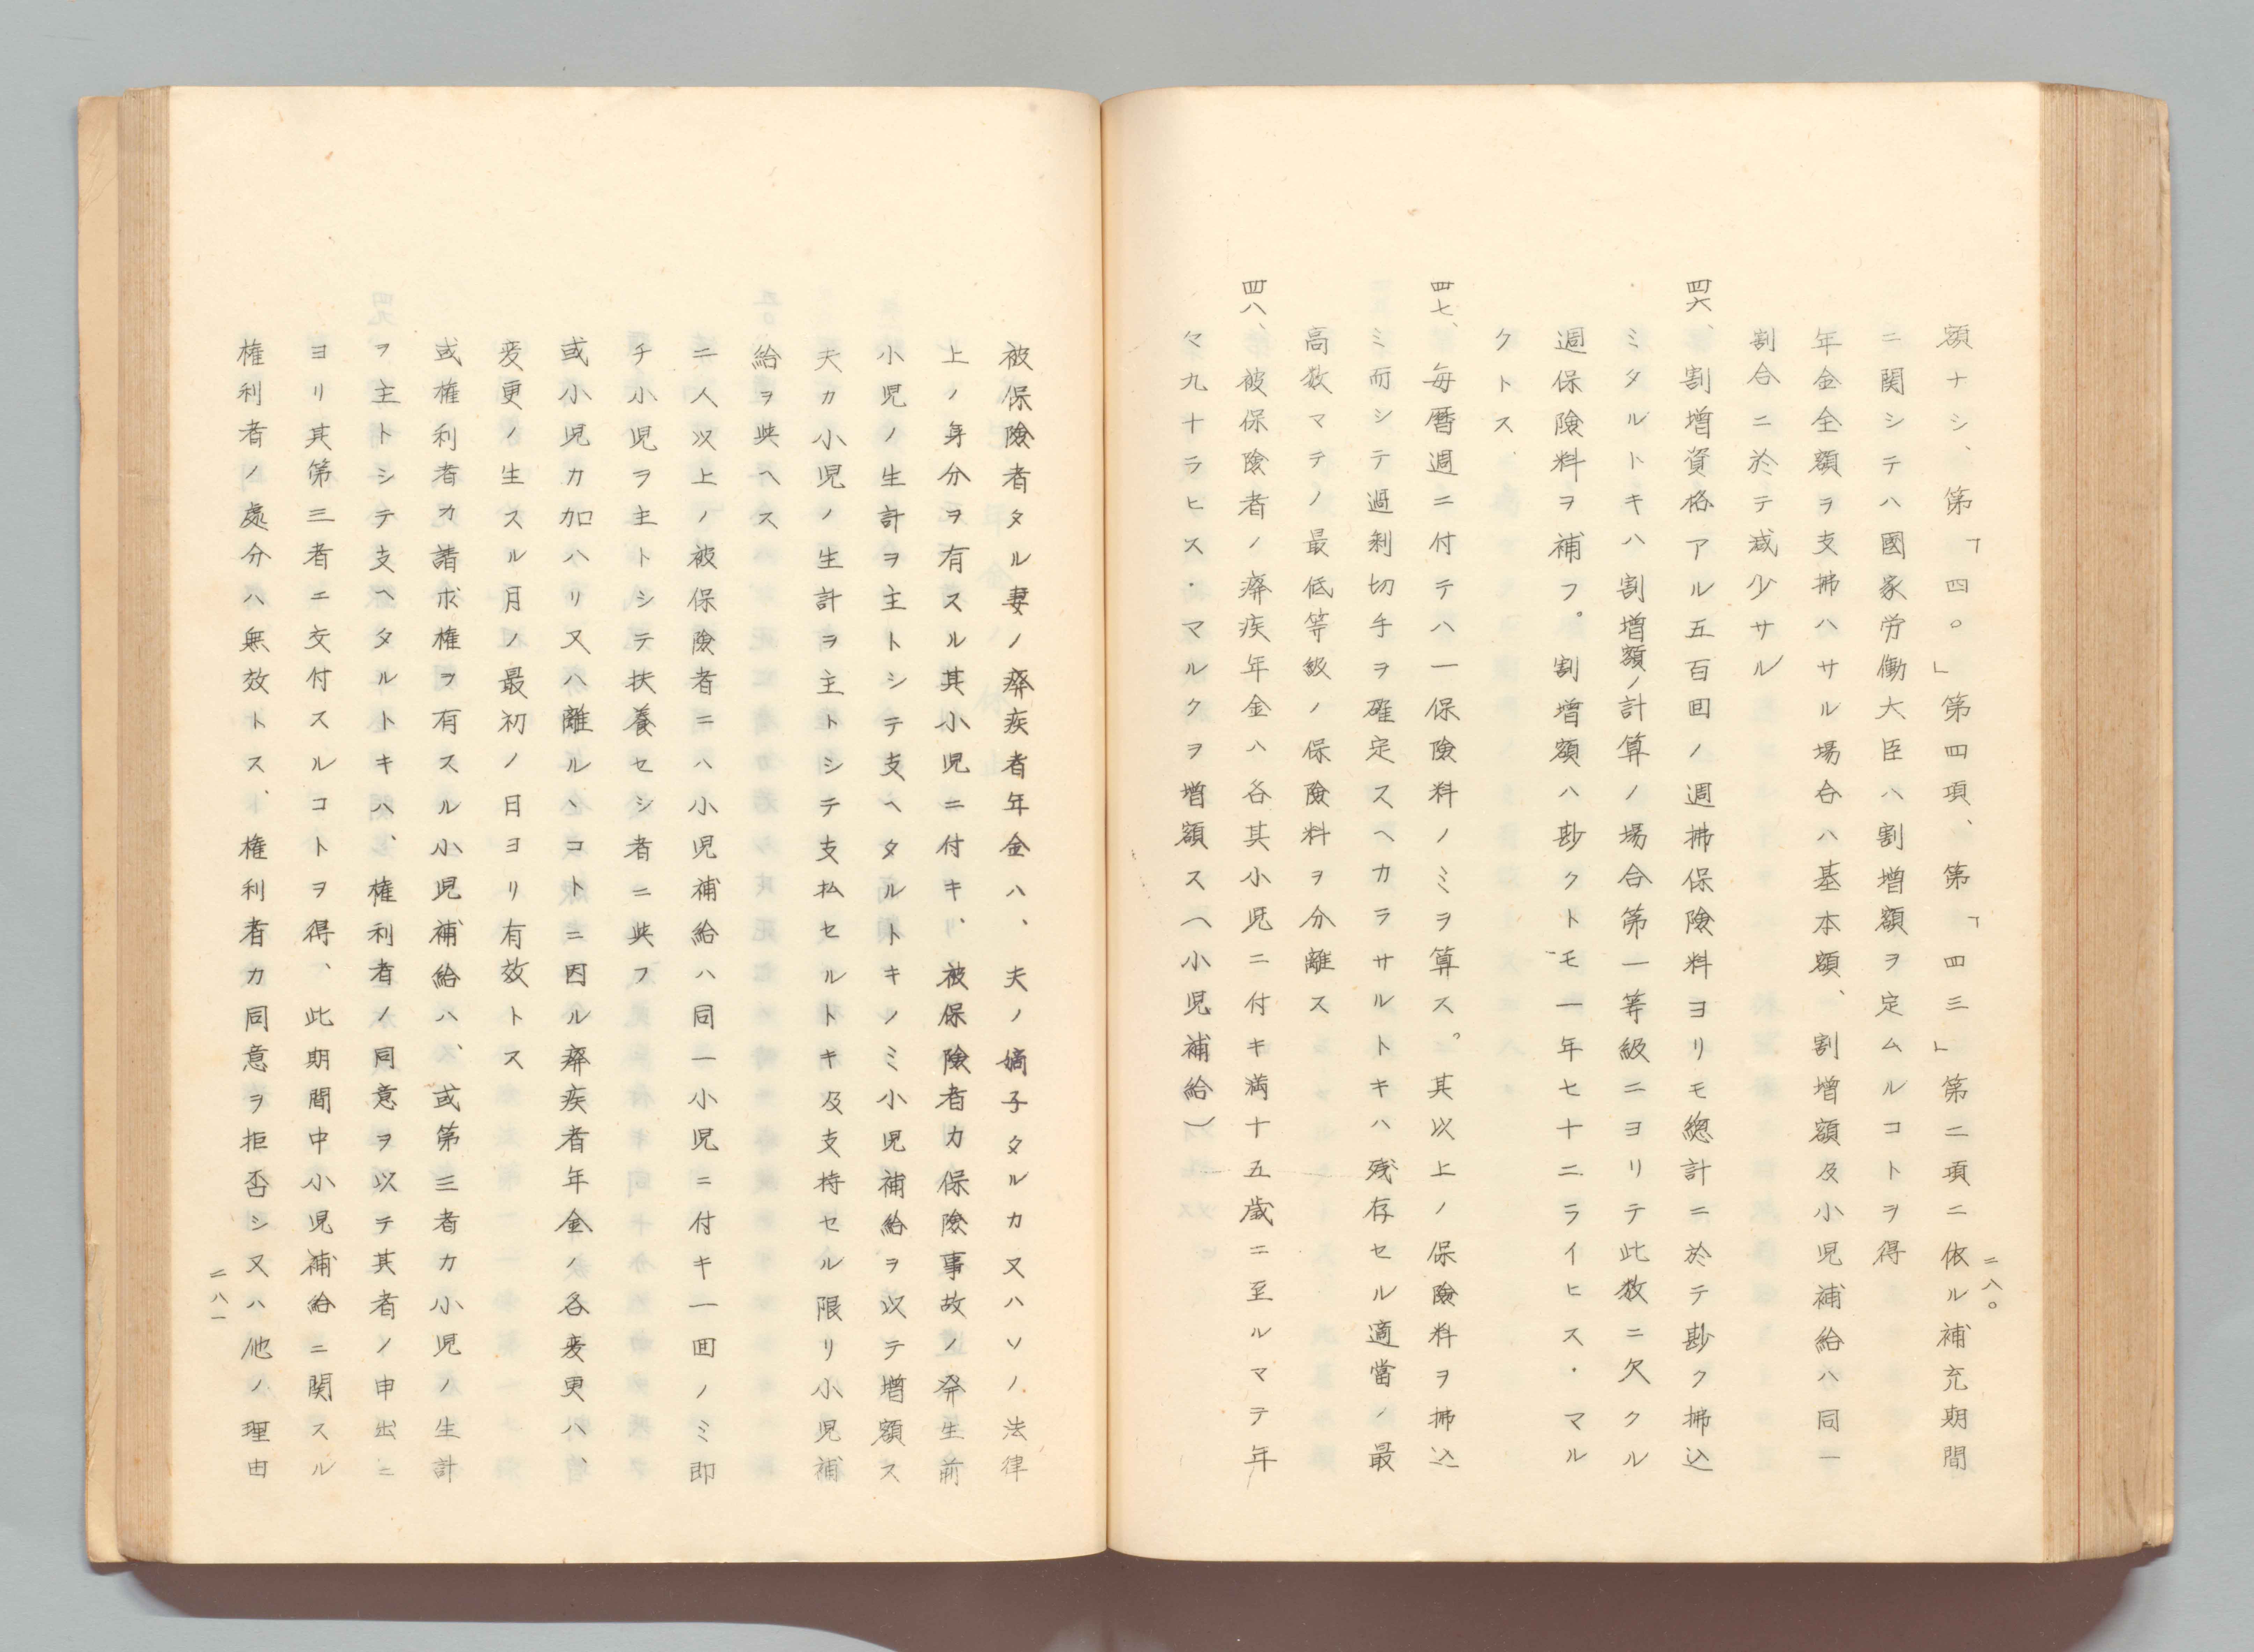 額ナシ、第「四〇」第四項、第「四三」第二項ニ依ル補充期間
ニ関シテハ國家労働大臣ハ割増額ヲ定ムルコトヲ得
年金全額ヲ支拂ハサル場合ハ基本額、割増額及小児補給ハ同一
割合ニ於テ減少サル
四六、割増資格アル五百回ノ週拂保險料ヨリモ總計ニ於テ尠ク拂込
ミタルトキハ割増額ノ計算ノ場合第一等級ニヨリテ此数ニ欠クル
週保險料ヲ補フ。割増額ハ尠クトモ一年七十二ライヒス・マル
クトス
四七、毎暦週ニ付テハ一保險料ノミヲ算ス。其以上ノ保險料ヲ拂込
ミ而シテ過剰切手ヲ確定スヘカラサルトキハ残存セル適當ノ最
高数マテノ最低等級ノ保險料ヲ分離ス
四八、被保險者ノ癈疾年金ハ各其小児ニ付キ満十五歳ニ至ルマテ年
々九十ラヒス・マルクヲ増額ス(小児補給)
二八〇
被保險者タル妻ノ癈疾者年金ハ、夫ノ嫡子タルカ又ハソノ法律
上ノ身分ヲ有スル其小児ニ付キ、被保險者カ保險事故ノ発生前
小児ノ生計ヲ主トシテ支ヘタルトキノミ小児補給ヲ以テ増額ス
夫カ小児ノ生計ヲ主トシテ支払セルトキ及支持セル限リ小児補
給ヲ與ヘス
二人以上ノ被保險者ニハ小児補給ハ同一小児ニ付キ一回ノミ即
チ小児ヲ主トシテ扶養セシ者ニ與フ
或小児カ加ハリ又ハ離ルヽコトニ因ル癈疾者年金ノ各変更ハ、
変更ノ生スル月ノ最初ノ日ヨリ有效トス
或権利者カ請求権ヲ有スル小児補給ハ、或第三者カ小児ノ生計
ヲ主トシテ支ヘタルトキハ、権利者ノ同意ヲ以テ其者ノ申出ニ
ヨリ其第三者ニ交付スルコトヲ得、此期間中小児補給ニ関スル
権利者ノ處分ハ無效トス、権利者カ同意ヲ拒否シ又ハ他ノ理由
二八一